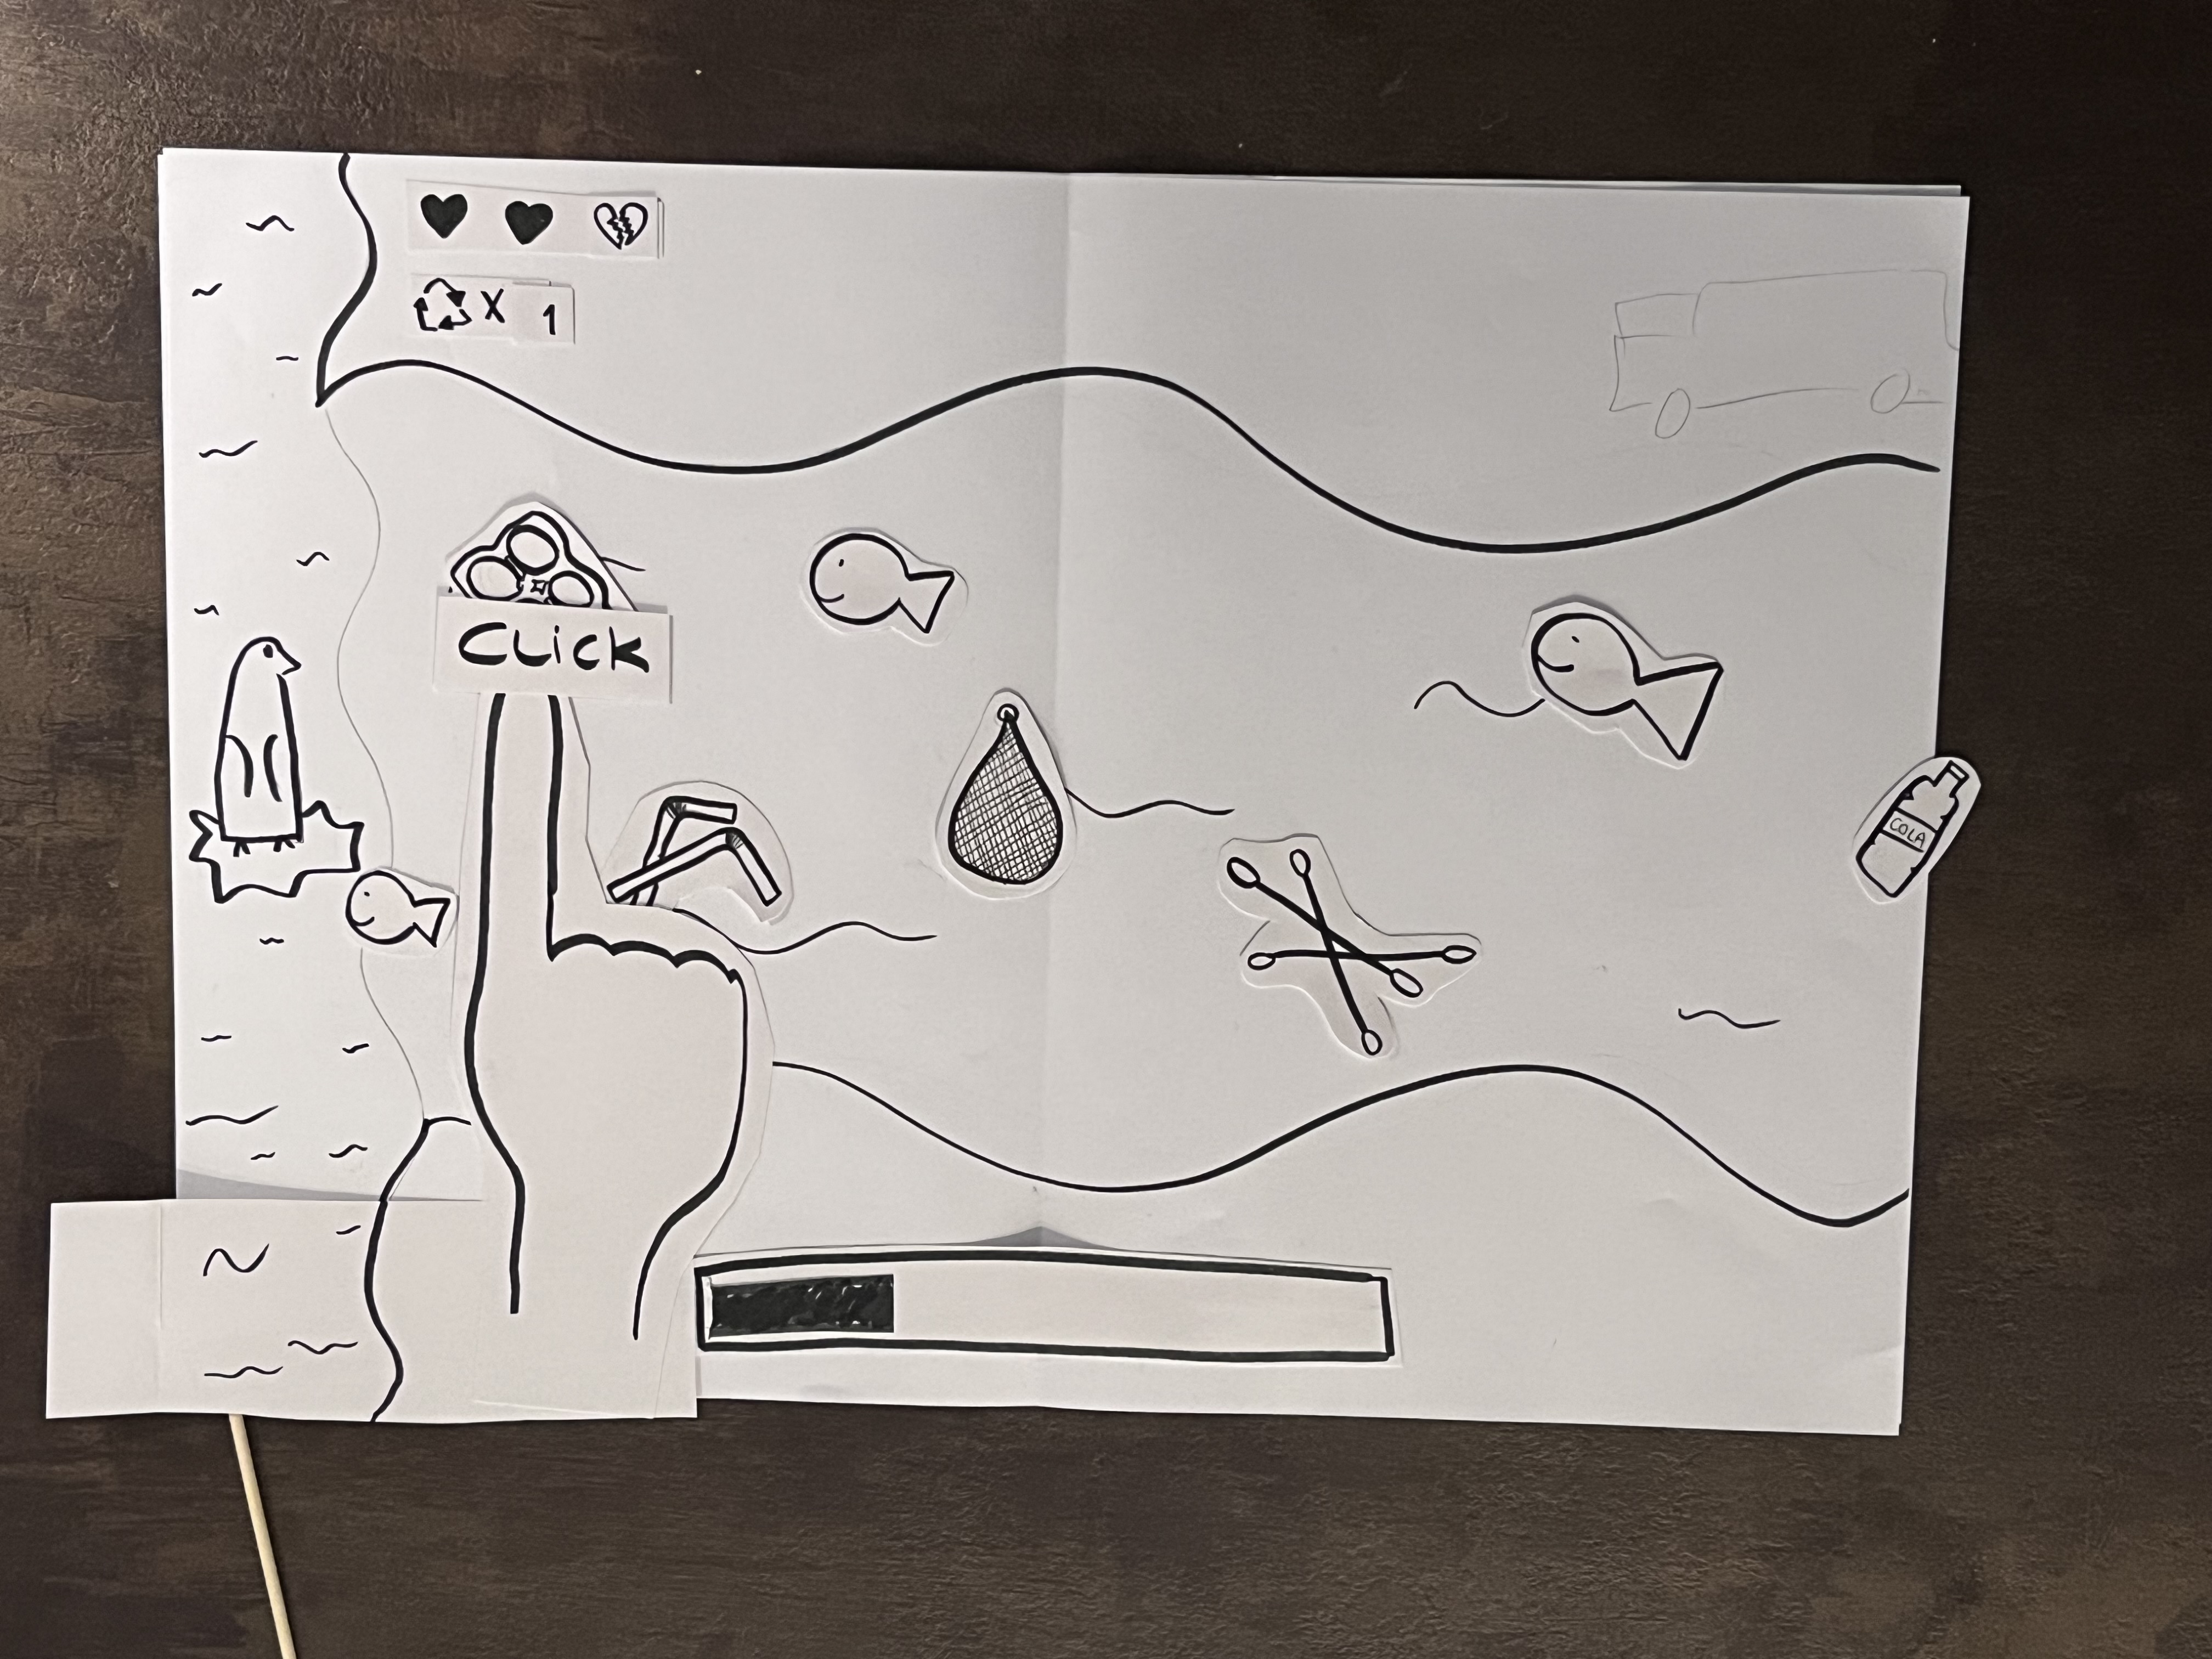 X 1
CLiCK
COLA